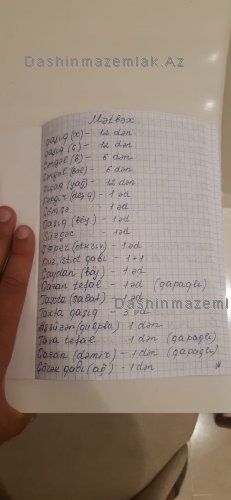 Dashinmazemlak.Az
Mətbəx.
qaşıq (x) - 12 dən
qaşıq (ç) - 12 dən
Çəngəl (b) - 6 dən
Çəngəl - 6 dən
- 12 dən
- 1 əd
- 1 əd
Qaşıq (böy) - 1 əd
Süzgəc - 1 əd
- 1 əd
Duz, istiot qabı - 1+1
Çaydan (böy) - 1 əd
Qazan tefal - 1 əd (qapaqlı)
Taxta (salat)
Dashinmazemlak.Az
Taxta qaşıq - 3 əd
Aşsüzən (qulplu) 1 dən
Tava tefal 1 dən (qapaqlı)
Qazan (dəmir) - 1 dən (qapaqlı)
Çörək qabı (ağ) - 1 dən